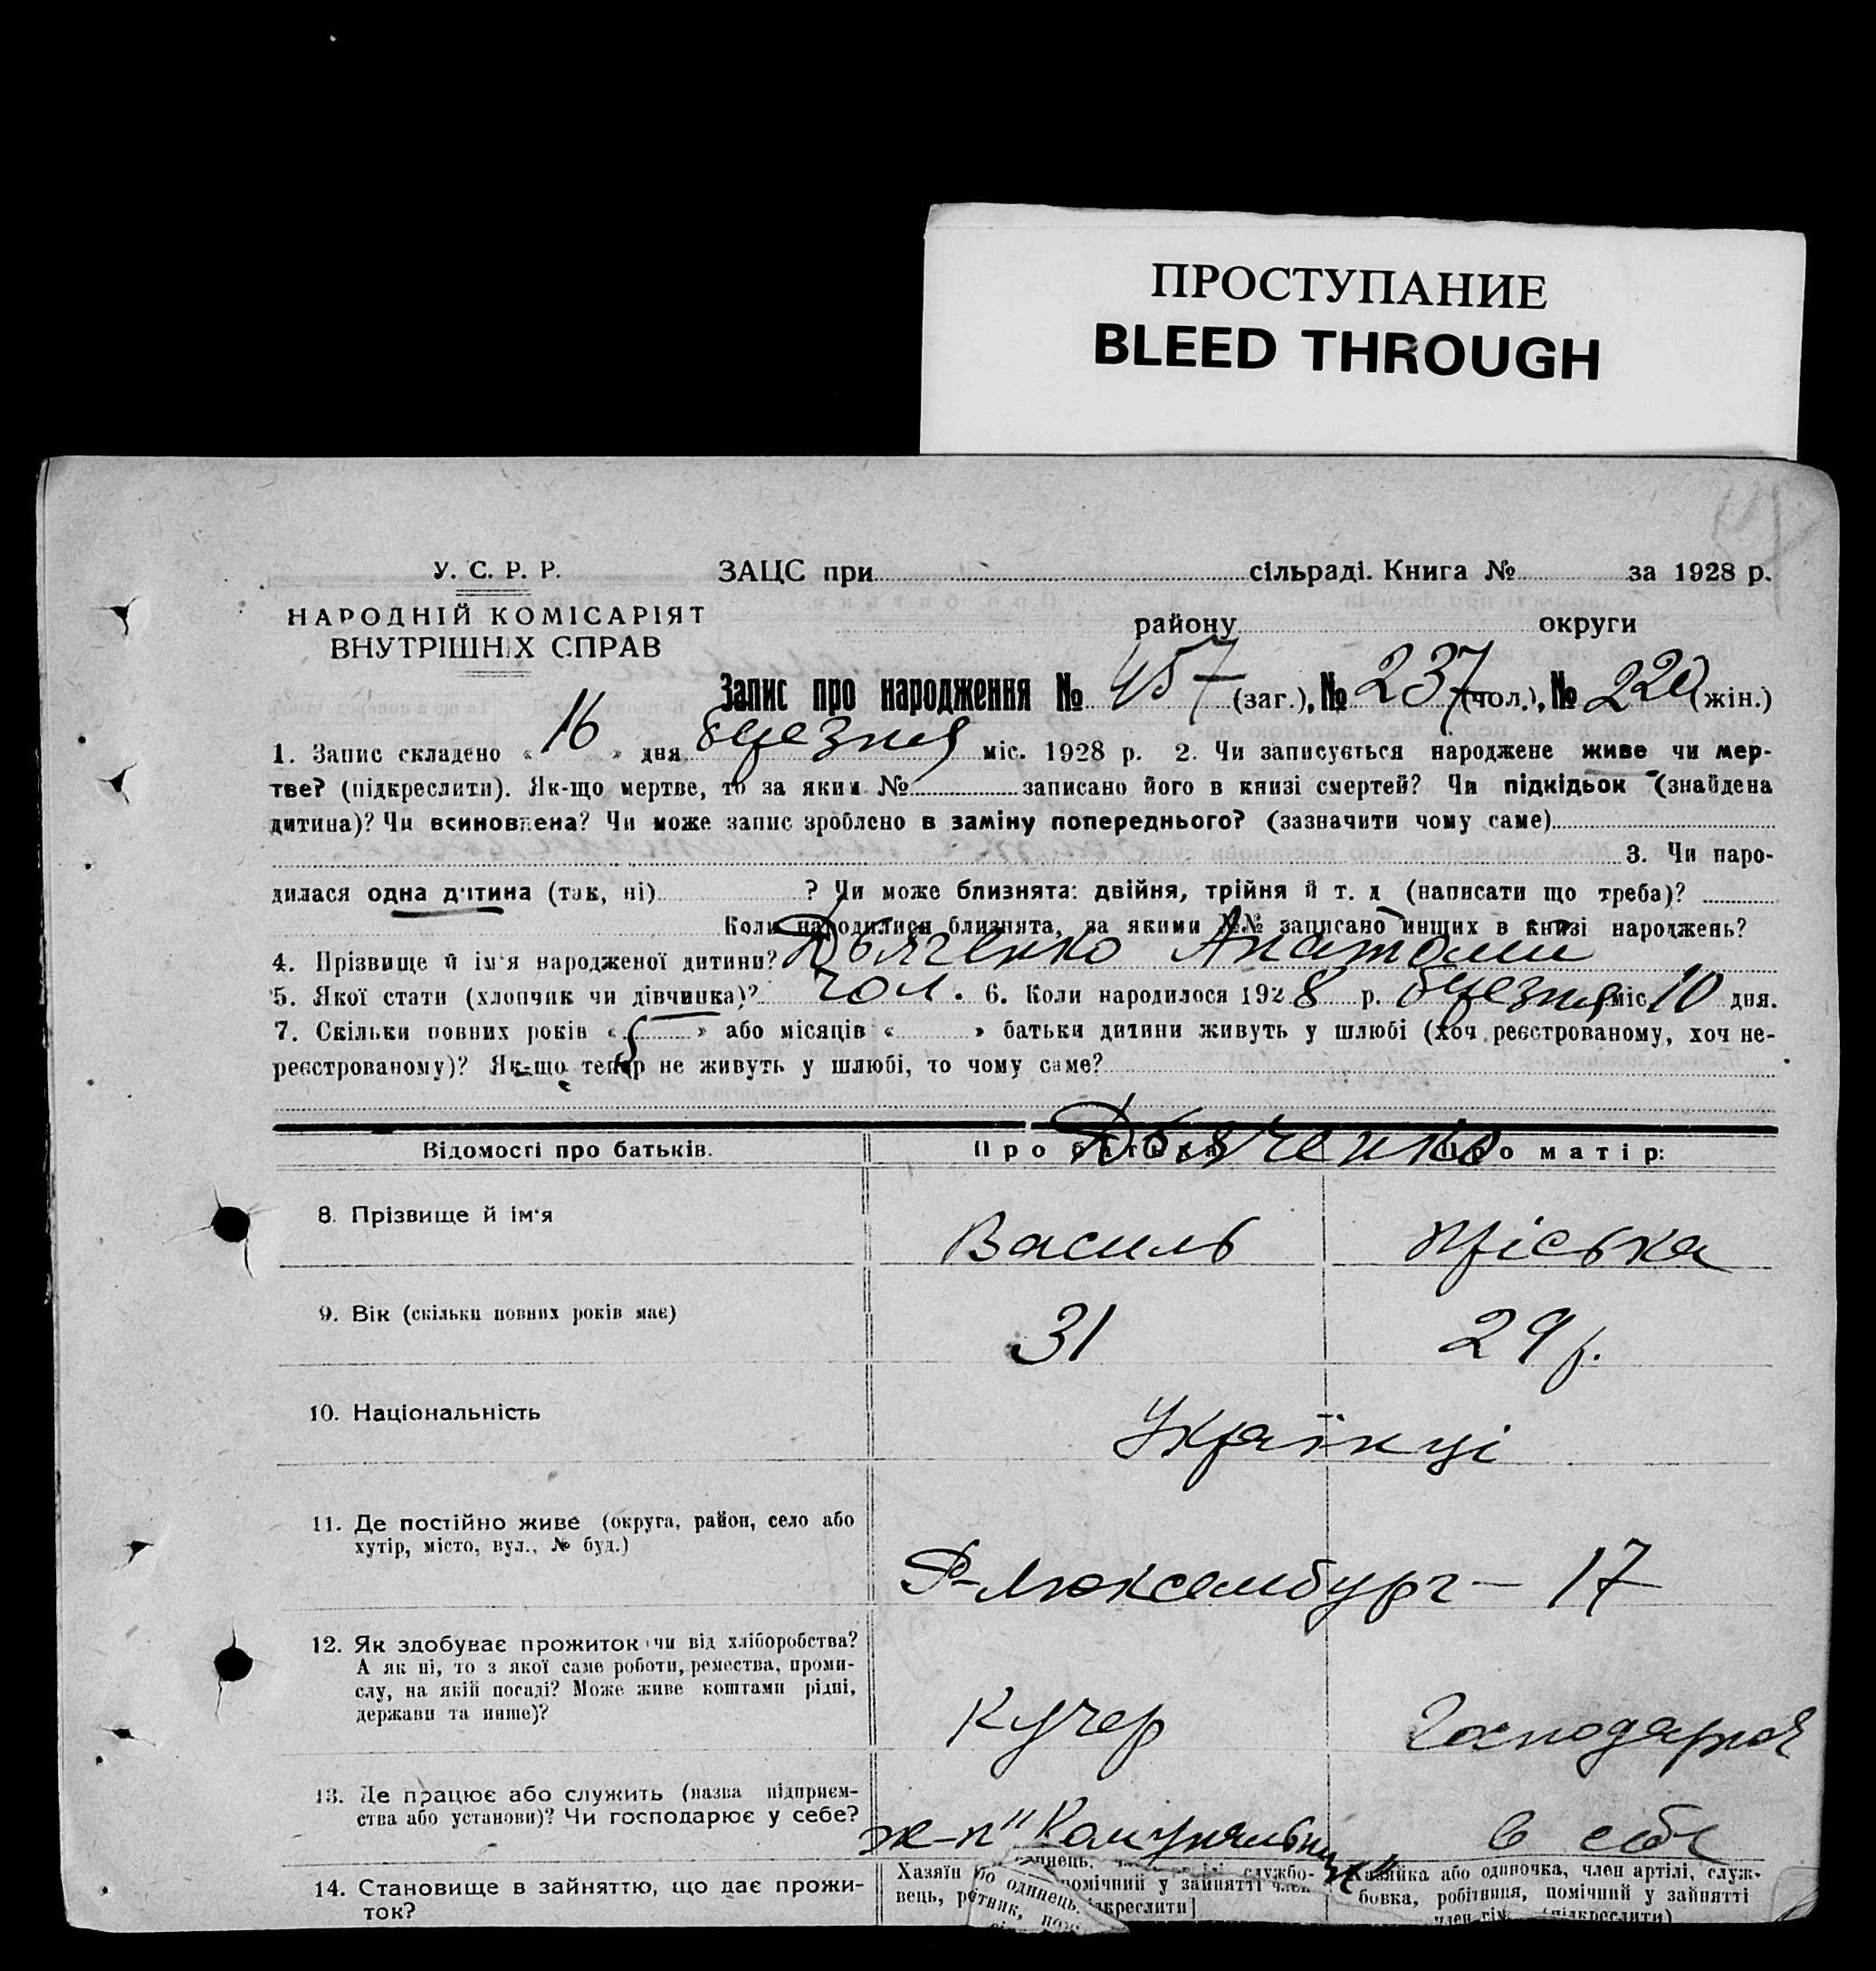 ПРОСТУПАНИЕ
BLEED THROUGH
У. С. Р. Р.
ЗАЦС при сільраді. Книга № за 1928 р.
НАРОДНІЙ КОМІСАРІЯТ
району округи
ВНУТРІШНІХ СПРАВ
Запис про народження № 457 (заг.), № 237 (чол.), № 220 (жін.)
1. Запис складено « 16 » дня березня міс. 1928 р. 2. Чи записується народжене живе чи мер-
тве? (підкреслити). Як-що мертве, то за яким № записано його в книзі смертей? Чи підкідьок (знайдена
дитина)? Чи всиновлена? Чи може запис зроблено в заміну попереднього? (зазначити чому саме)
3. Чи наро-
дилася одна дитина (так, ні) ? Чи може близнята: двійня, трійня й т. д (написати що треба)?
Коли народилися близнята, за якими №№ записано инших в книзі народжень?
4. Прізвище й ім'я народженої дитини? Дьяченко Анатолий
5. Якої стати (хлопчик чи дівчинка)? чол. 6. Коли народилося 1928 р. березня міс 10 дня.
7. Скільки повних років « » або місяців « » батьки дитини живуть у шлюбі (хоч реєстрованому, хоч не-
реєстрованому)? Як-що тепер не живуть у шлюбі, то чому саме?
Дьяченко
Відомості про батьків. Про батька: Про матір:
8. Прізвище й ім'я Василь
9. Вік (скільки повних років має) 31 29 р.
10. Національність Українці
11. Де постійно живе (округа, район, село або
хутір, місто, вул., № буд.)
Р-Люксембург – 17
12. Як здобуває прожиток чи від хліборобства?
А як ні, то з якої саме роботи, ремества, проми-
слу, на якій посаді? Може живе коштами рідні,
держави та инше)?
Кучер Господарка
13. Де працює або служить (назва підприєм-
ства або установи)? Чи господарює у себе?
ж-п "Комунальник" в себе
14. Становище в зайняттю, що дає прожи-
ток?
Хазяїн службо-
вець, помічний у зайнятті член
Хазяйка або одиночка, член артілі, служ-
бовка, робітниця, помічний у зайнятті
(підкреслити)